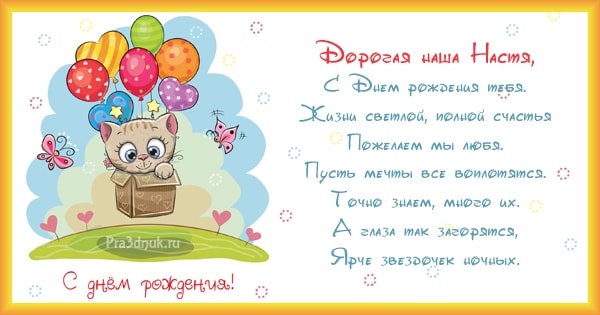 Дорогая наша Настя,
С Днем рождения тебя.
Жизни светлой, полной счастья
Пожелаем мы любя.
Пусть мечты все воплотятся.
Точно знаем, много их.
А глаза так загорятся,
Ярче звездочек ночных.
Pra3dnuk.ru
С днём рождения!